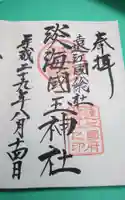 奉拝
遠江國総社
淡海國玉神社
平成二十九年八月十四日